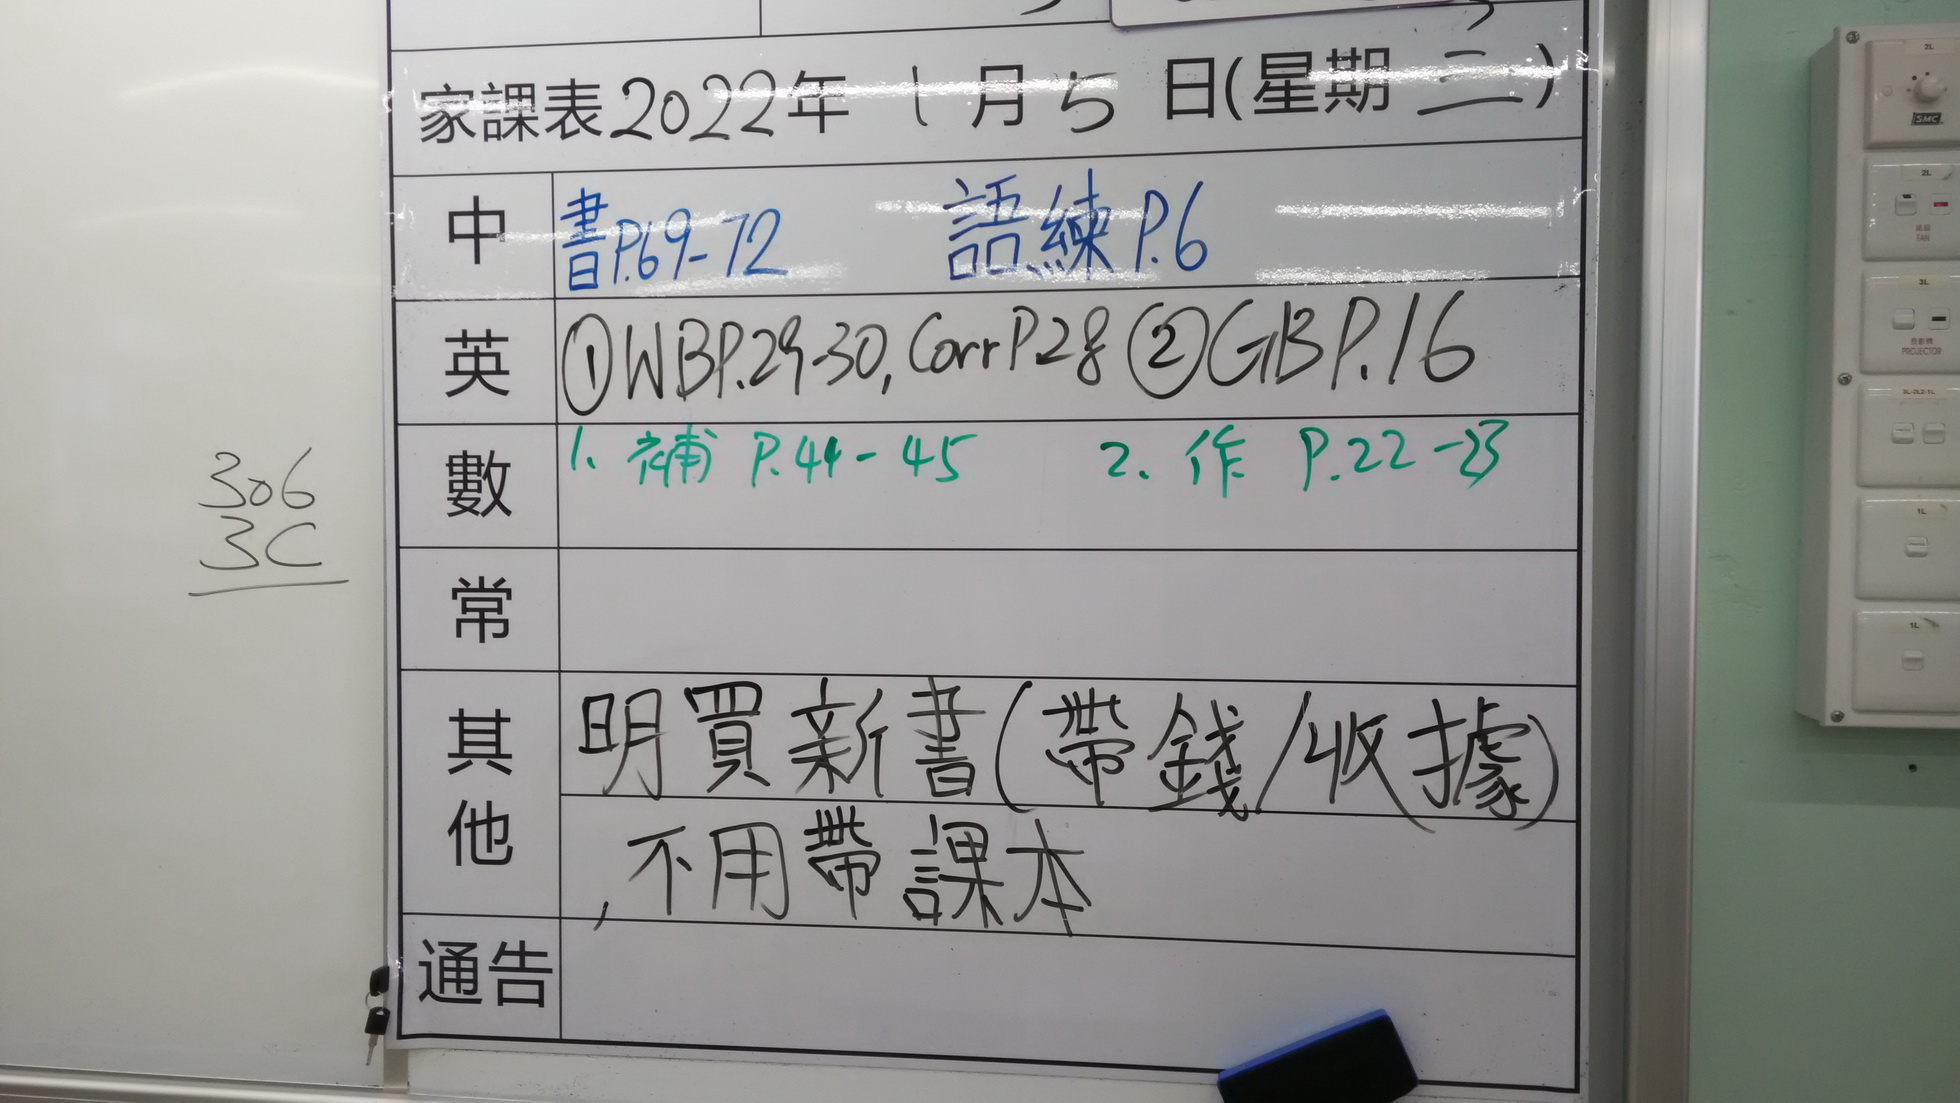 家課表2022年1月5日(星期三)
中 書P.69-72 語練P.6
英 ①WBP.29-30, Corr P28 ②GBP.16
數 1. 補 P.44-45 2. 作 P.22-23
306
3C
常
其他 明買新書(帶錢/收據)
,不用帶課本
通告
2L
SMC
2L
FAN
3L
投影機
PROJECTOR
1L
1L